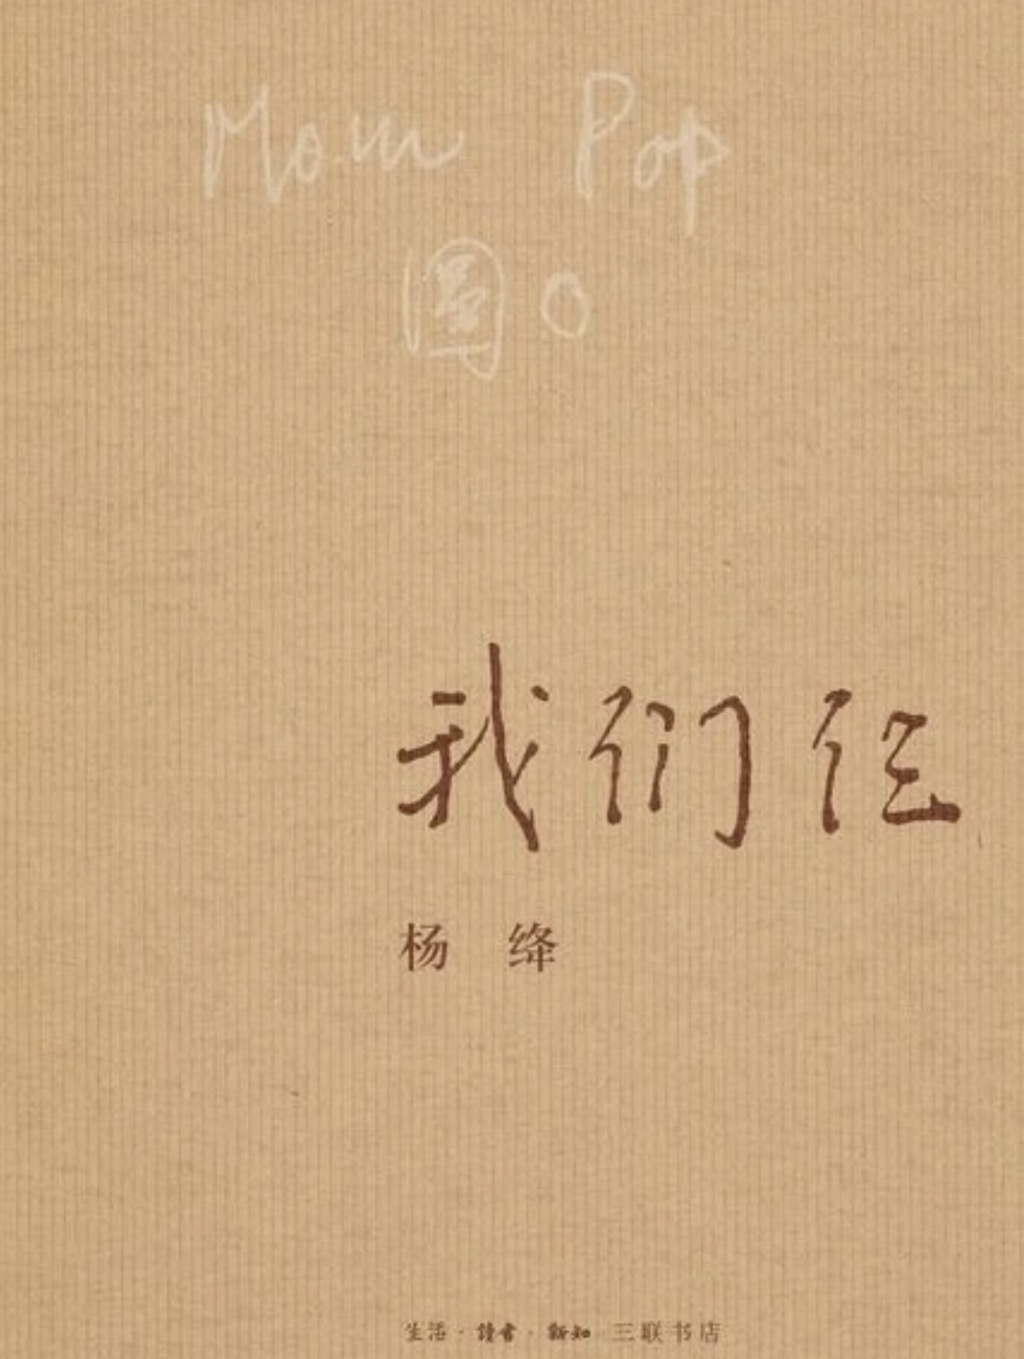 Mom Pop
圓 O
我们仨
杨 绛
生活·讀書·新知 三联书店